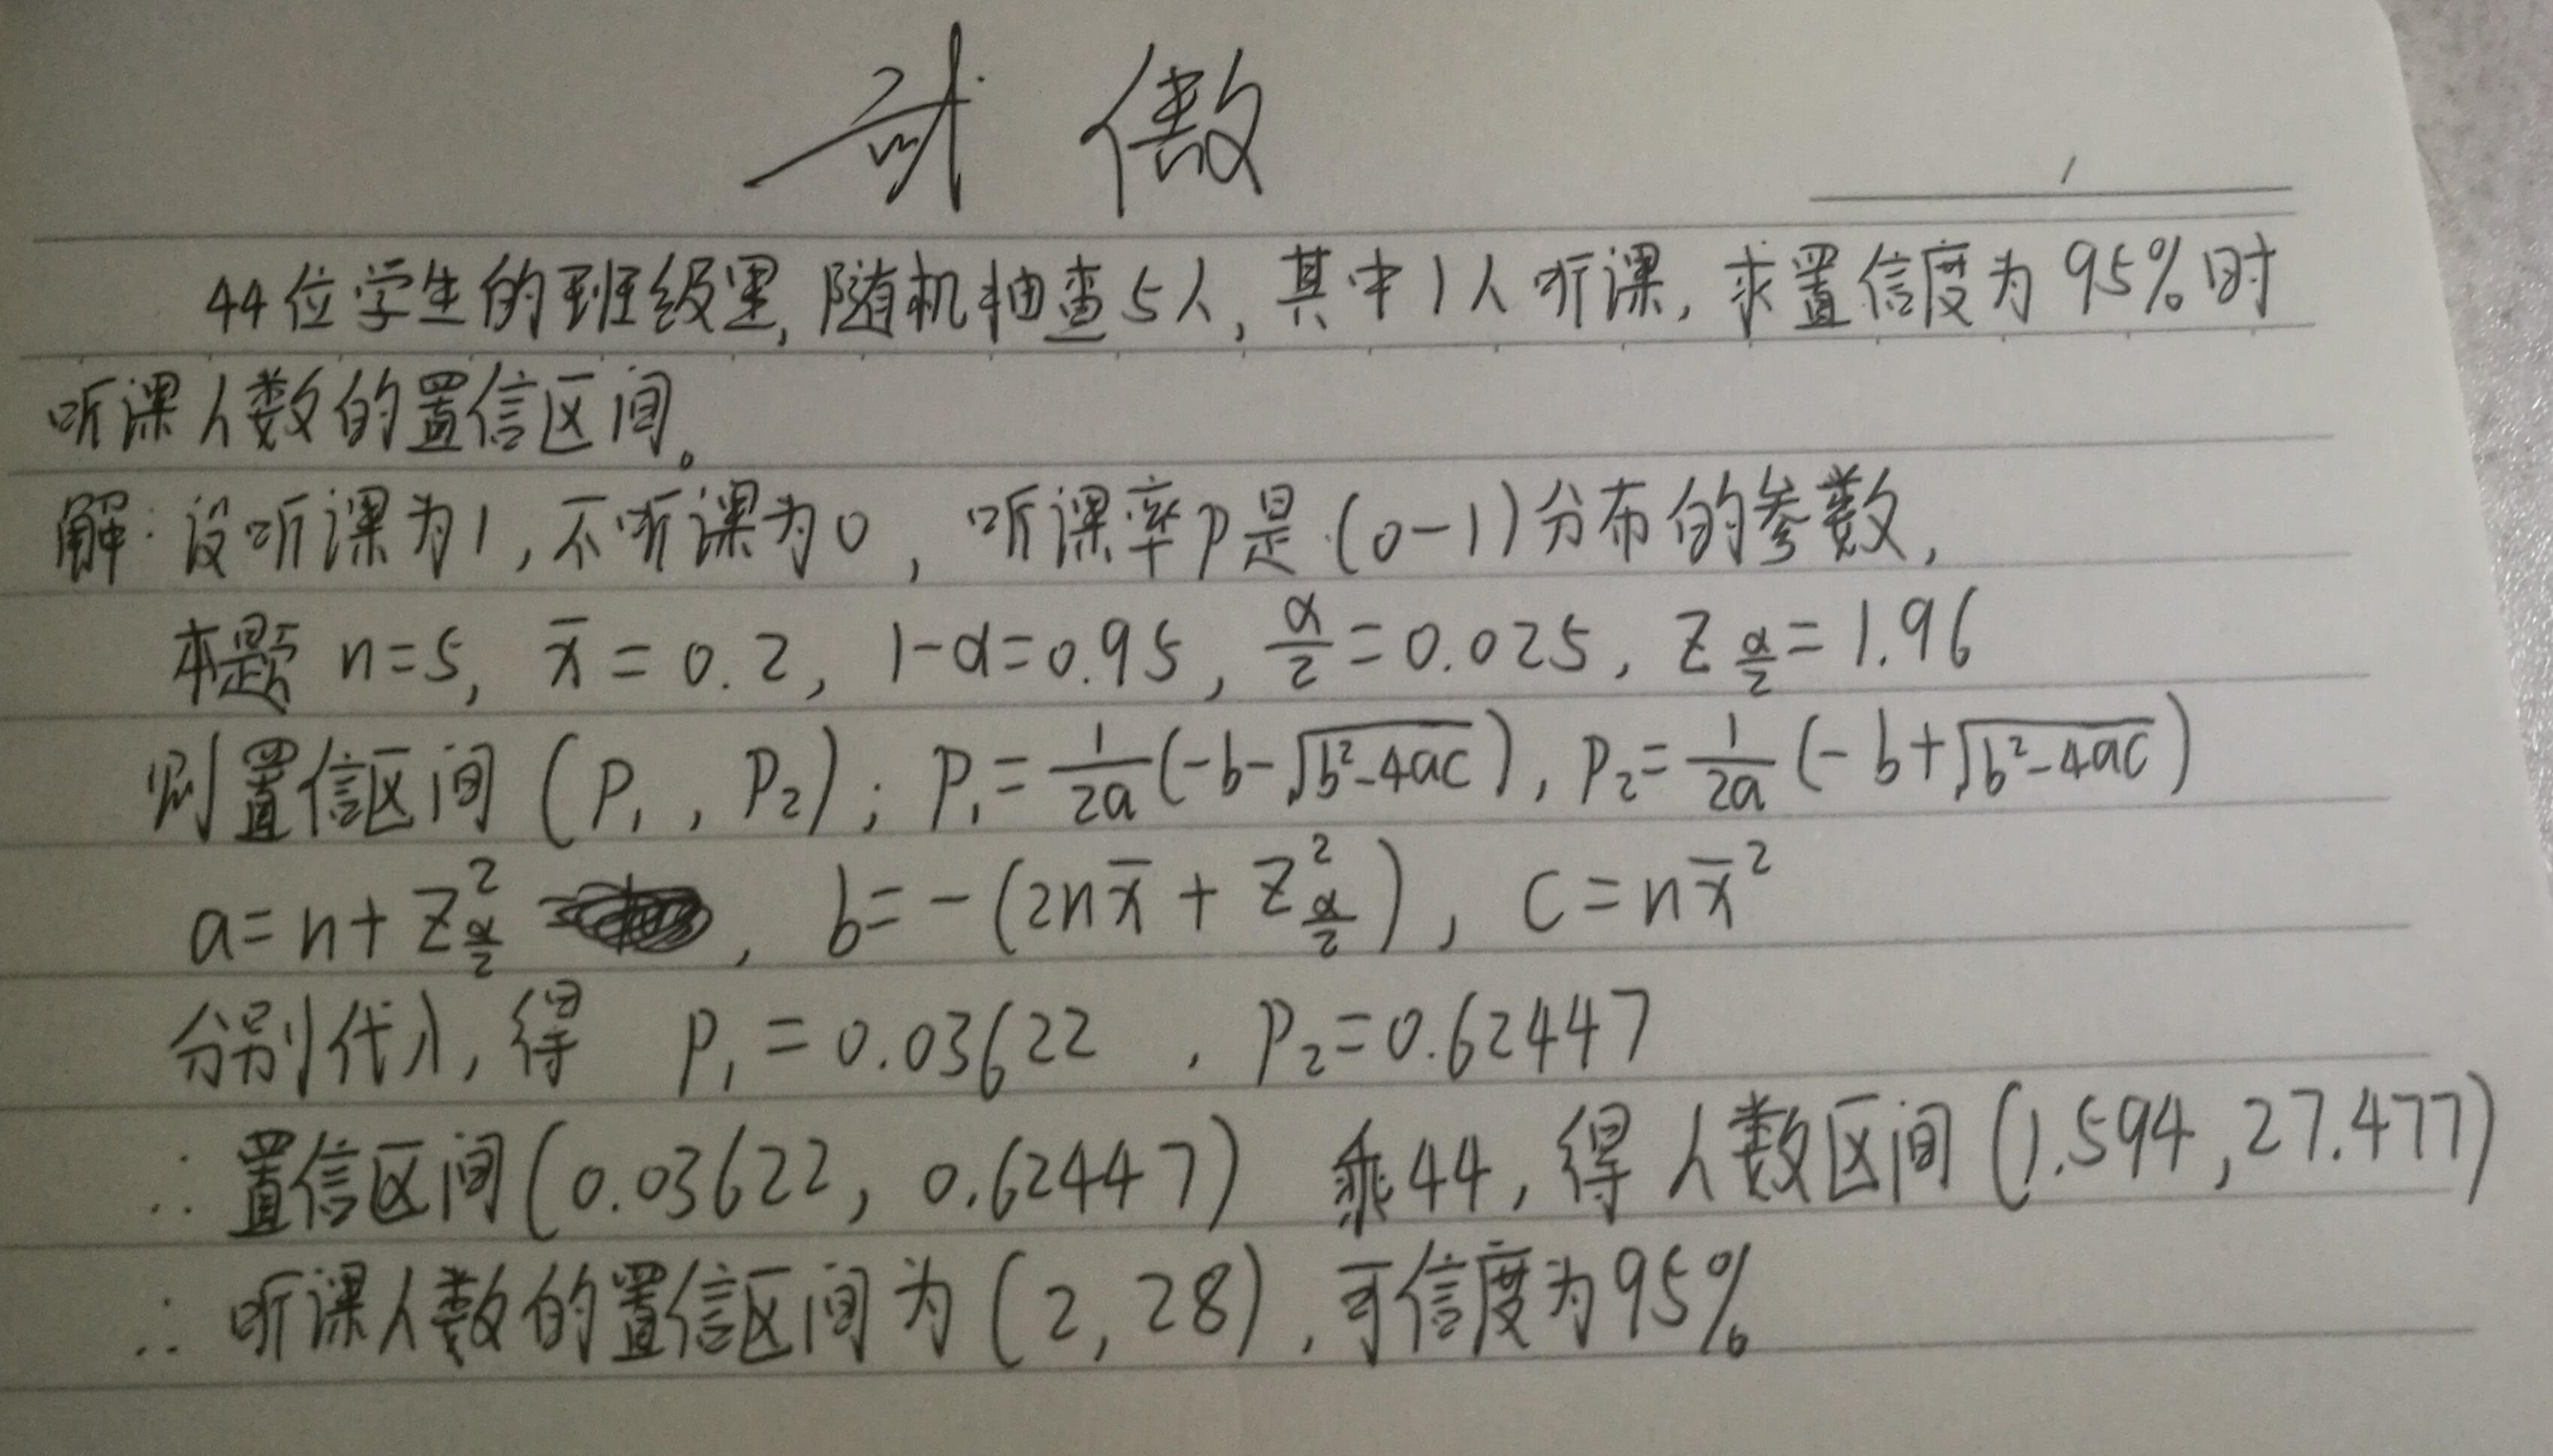 44位学生的班级里,随机抽查5人,其中1人听课,求置信度为95%时
听课人数的置信区间。
解:设听课为1,不听课为0,听课率p是(0-1)分布的参数,
本题 n=5, x̄=0.2, 1-α=0.95, α/2=0.025, z_{α/2}=1.96
则置信区间(p₁, p₂); p₁=1/2a(-b-√(b²-4ac)), p₂=1/2a(-b+√(b²-4ac))
a=n+z²_{α/2}, b=-(2nx̄+z²_{α/2}), c=nx̄²
分别代入,得 p₁=0.03622, p₂=0.62447
∴置信区间(0.03622, 0.62447) 乘44,得人数区间(1.594,27.477)
∴听课人数的置信区间为(2,28),可信度为95%